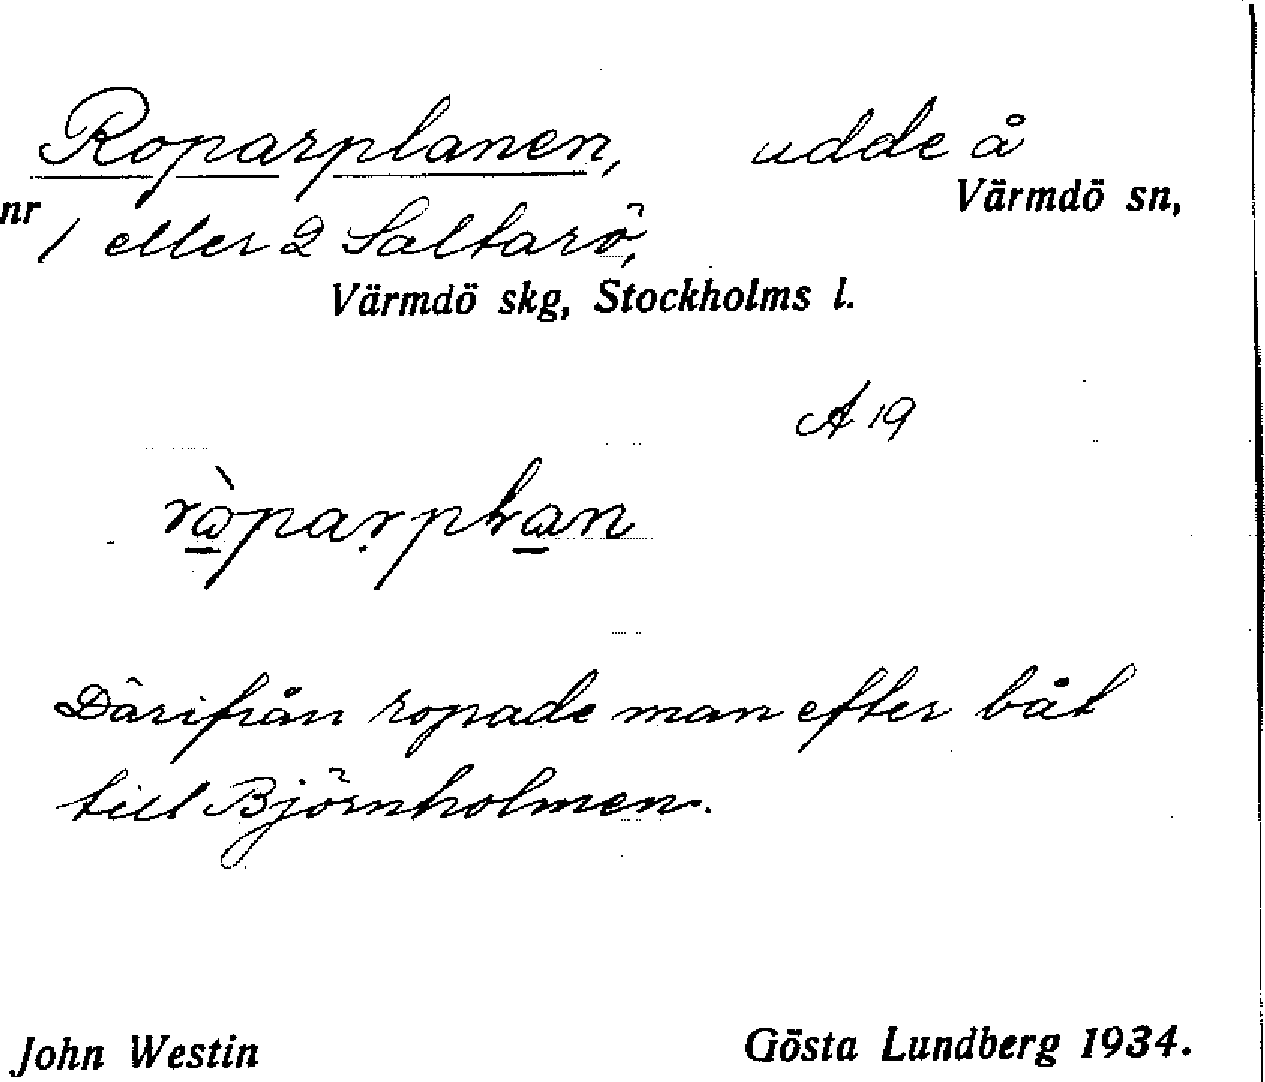 Roparplanen, udde å
Värmdö sn,
nr 1 eller 2 Saltarö,
Värmdö skg, Stockholms l.
A 19
Därifrån ropade man efter båt
till Björnholmen.
John Westin Gösta Lundberg 1934.